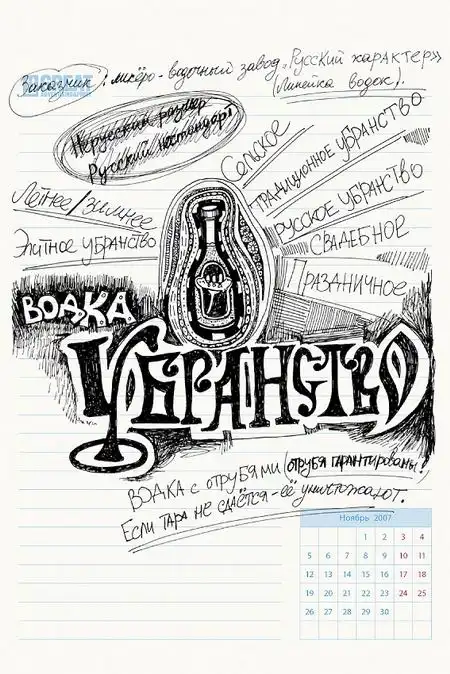 Заказчик: ликёро-водочный завод „Русский характер»
(Линейка водок).
GREAT
Нерусский размер
Русский нестандарт
Сельское
Традиционное убранство
Русское убранство
Свадебное
Праздничное
Летнее/зимнее
Элитное убранство
ВОДКА
УБРАНСТВО
ВОДКА с отрубями (отрубя гарантированы!
Если тара не сдаётся - её уничтожают.
Ноябрь 2007
1 2 3 4
5 6 7 8 9 10 11
12 13 14 15 16 17 18
19 20 21 22 23 24 25
26 27 28 29 30